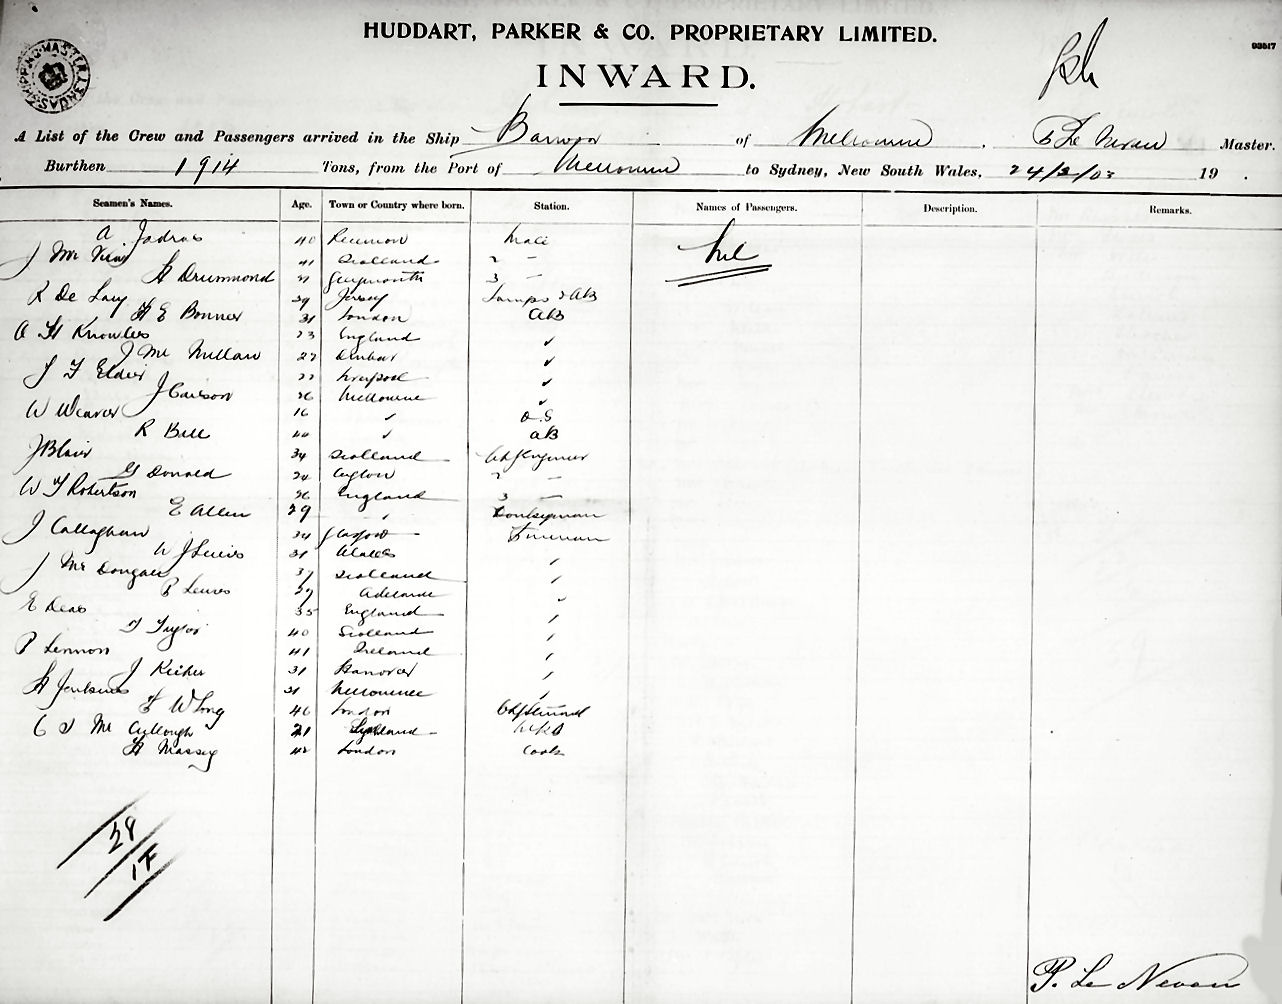 HUDDART, PARKER & CO. PROPRIETARY LIMITED.
93517
INWARD.
A List of the Crew and Passengers arrived in the Ship Barwon of Melbourne . P Le Neveu Master.
Burthen 1914 Tons, from the Port of Melbourne to Sydney, New South Wales, 24/2/03 19 .
Seamen's Names. Age. Town or Country where born. Station. Names of Passengers. Description. Remarks.
A. 40 Reunion Mate Nil
J Mc 41 Scotland 2 –
H Drummond Greymouth 3 –
R De 39 Jersey Lamps & AB
H E Bonner 31 London AB
A H Knowles 23 England ✓
J Mc Millan 22 Dunbar ✓
J F Elder 22 Liverpool ✓
J 26 Melbourne ✓
W Weaver 16 ✓ O.S
R Ball 40 ✓ AB
J Blair 34 Scotland Ch f Engineer
G Donald 24 Ceylon 2 –
W T Robertson 26 England 3 –
E Allen 29 Donkeyman
J Callaghan 34 Glasgow Fireman
W J Lewis 31 Wales
J Mc Dougall 37 Scotland
P Lewis 27 Adelaide
E Deas 35 England
T Taylor 40 Scotland
P Lennon 41 Ireland
J 31 Hanover
H Jenkins 31 Melbourne
F W Long 46 London Ch f Steward
C J Mc Cullough 21
H Massey 42 London Cook
28
1F
P. Le Neveu